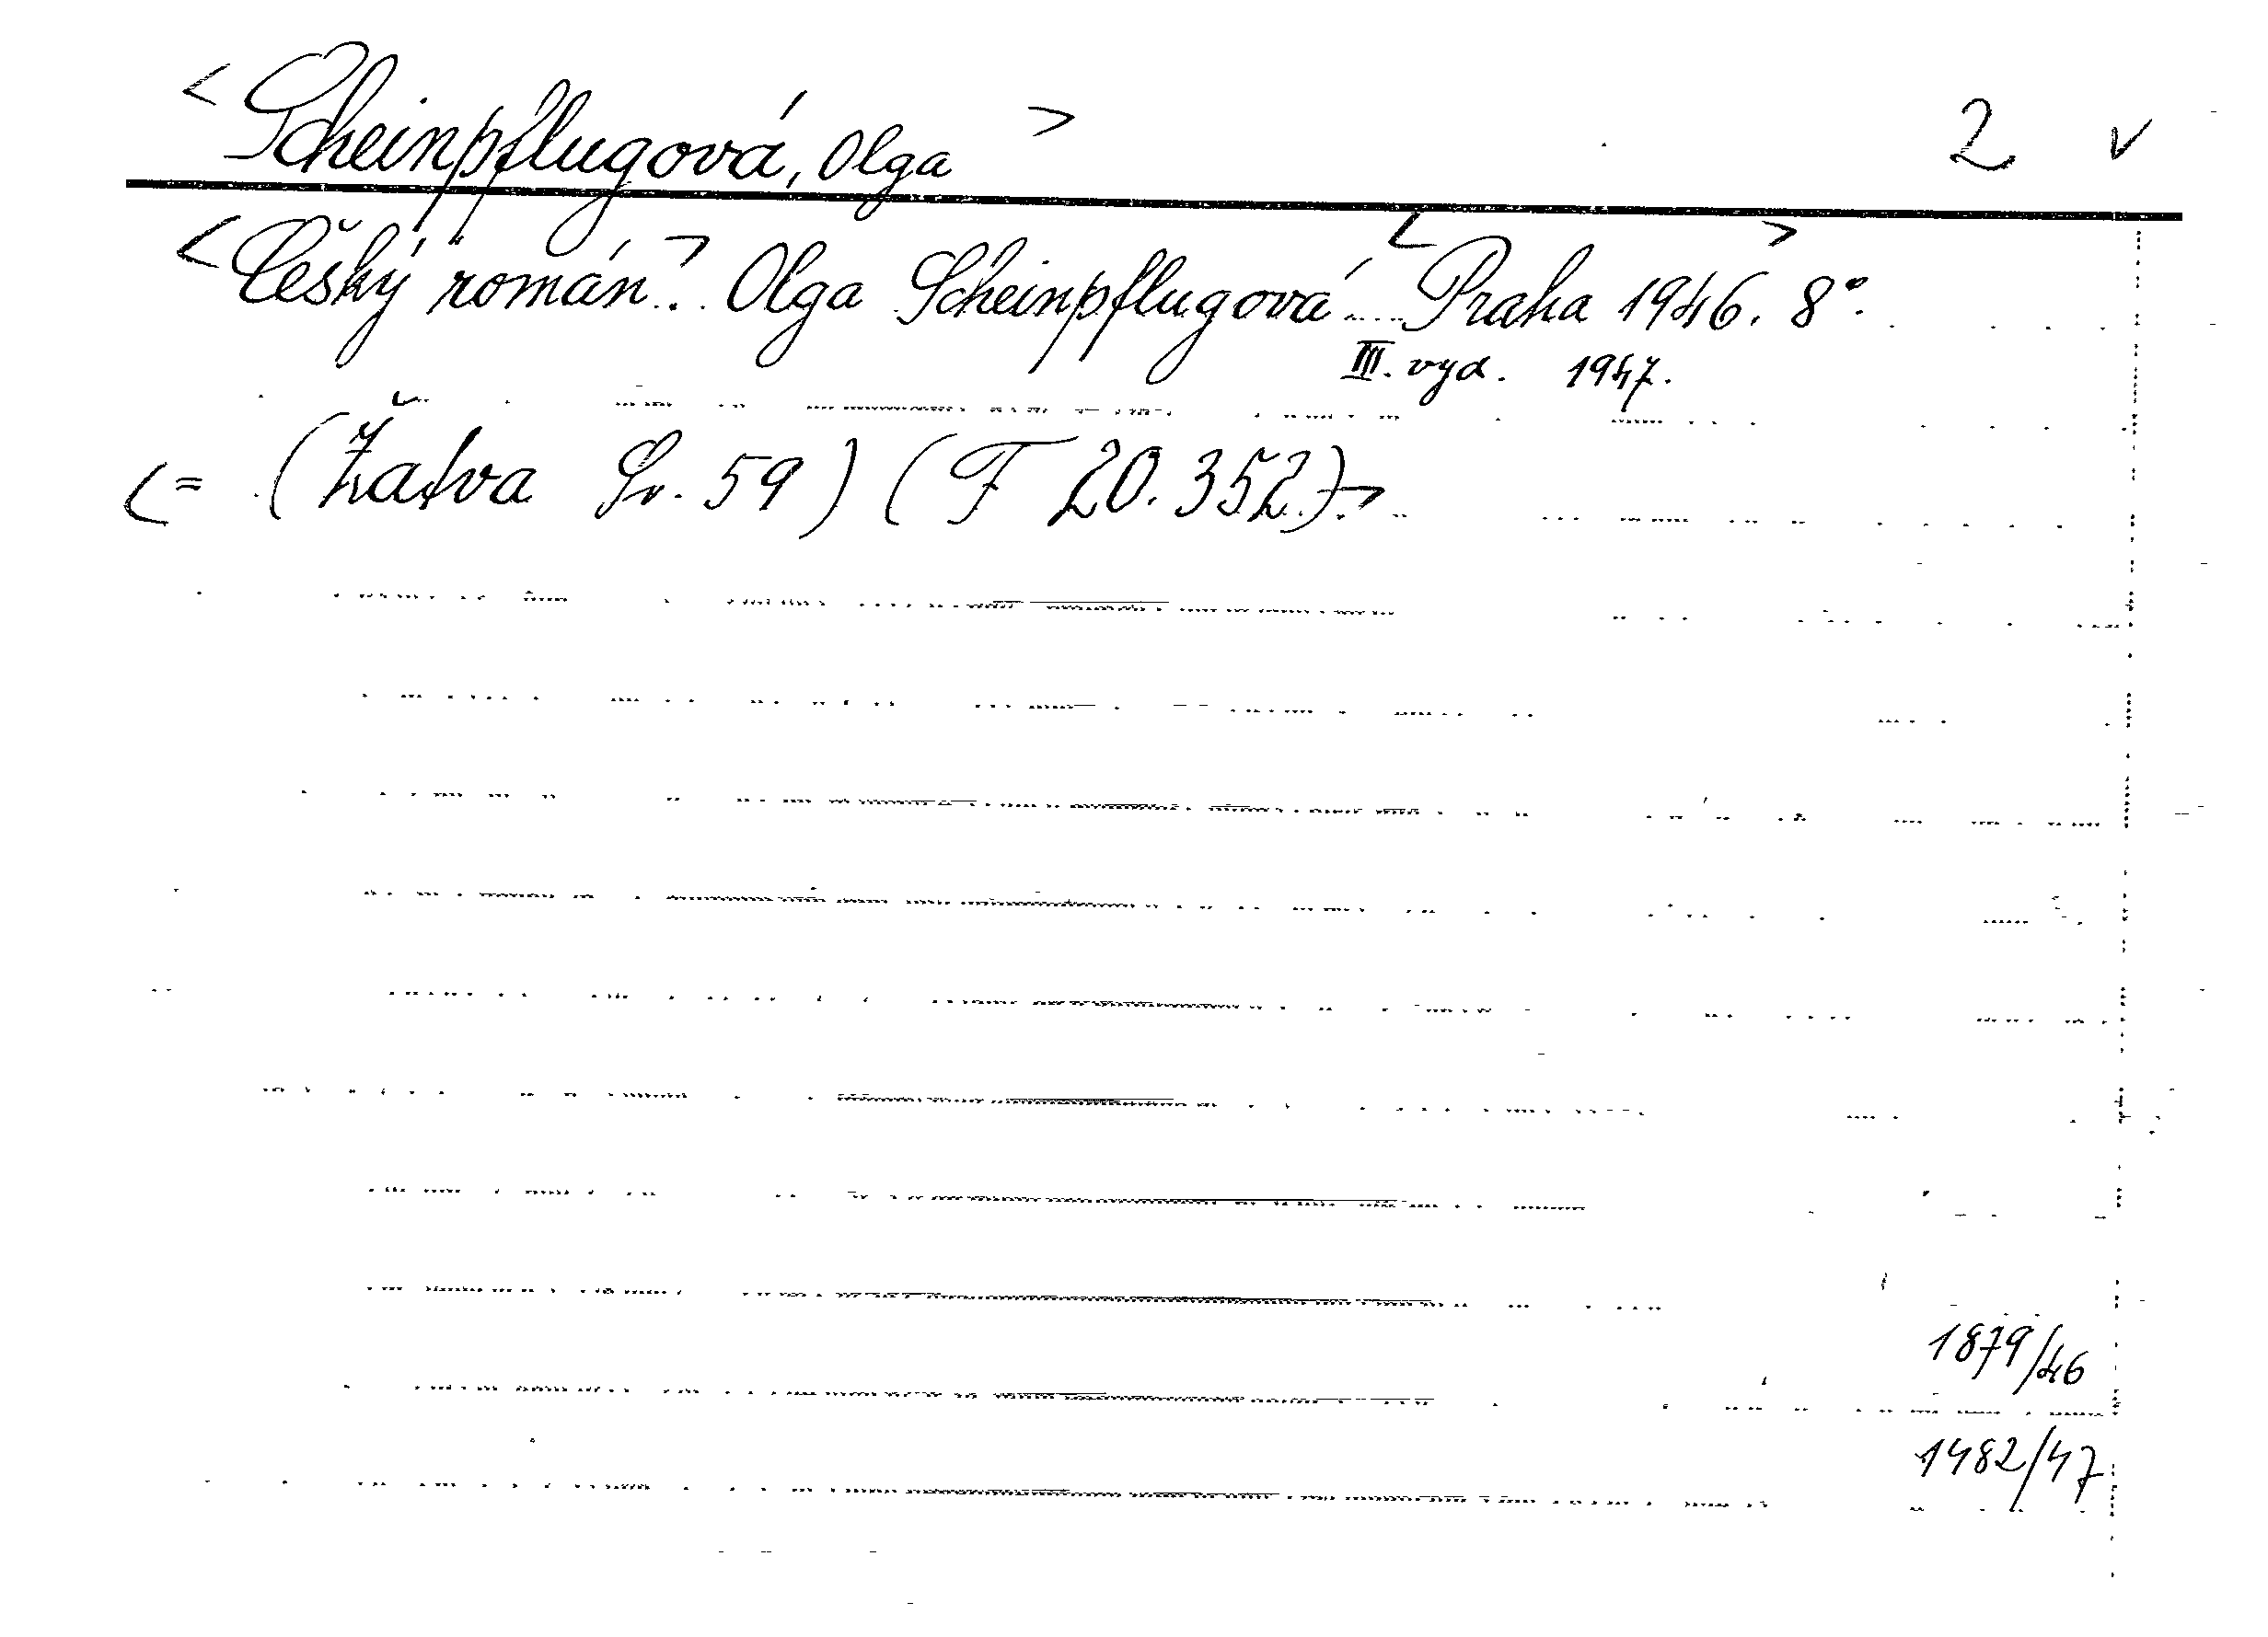 <Scheinpflugová, Olga> 2 v
<Český román.> Olga Scheinpflugová. <Praha> 1946. 8°.
III. vyd. 1947.
<= (Žatva Sv. 59) (F 20.352)>
1879/46
1482/47